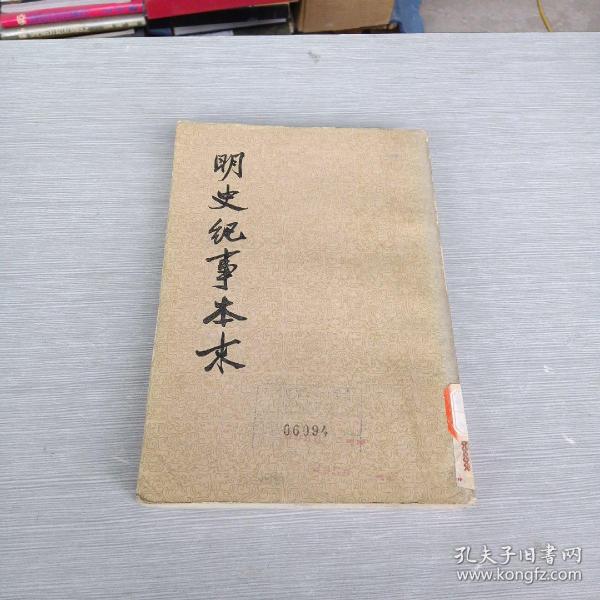 明史纪事本末
06094
孔夫子旧書网
www.kongfz.com